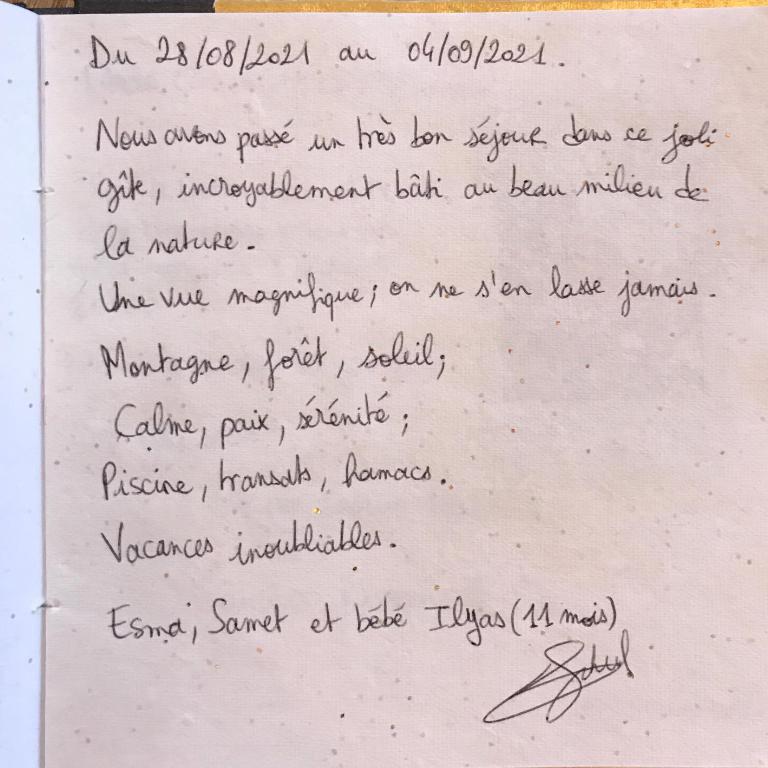 Du 28/08/2021 au 04/09/2021.
Nous avons passé un très bon séjour dans ce joli
gîte, incroyablement bâti au beau milieu de
la nature.
Une vue magnifique ; on ne s'en lasse jamais.
Montagne, forêt, soleil;
Calme, paix, sérénité ;
Piscine, transats, hamacs.
Vacances inoubliables.
Esma, Samet et bébé Ilyas (11 mois)